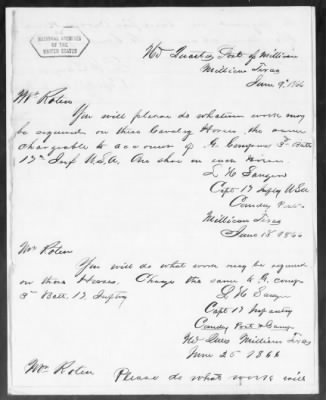 NATIONAL ARCHIVES
OF THE
UNITED STATES
Hd Quarters Post of Millican
Millican Texas
June 9th 1866
Mr Rolen
You will please do whatever work may
be required on three Cavalry Horses, the same
chargeable to account of G. Company 3d Batt
17th Inf U.S.A. One shoe on each Horse.
L H Sanger
Capt 17 Infty U.S.A
Comdg Post
Millican Texas
June 18 1866
Mr Rolen
You will do what work may be required
on three Horses. Charge the same to G. comp
3d Batt. 17 Infty
L H Sanger
Capt 17 Infantry
Comdg Post &
Hd Qrs Millican Texas
June 25 1866
Mr Rolen Please do what work will